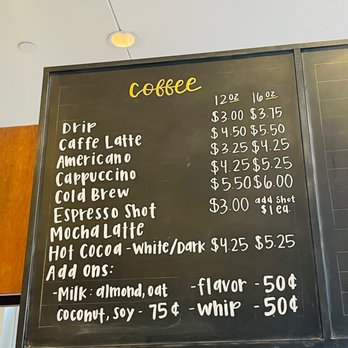 coffee
12oz 16oz
Drip $3.00 $3.75
Caffe Latte $4.50 $5.50
Americano $3.25 $4.25
Cappuccino $4.25 $5.25
Cold Brew $5.50 $6.00
Espresso Shot $3.00 add shot $1 ea.
Mocha Latte
Hot Cocoa - White/Dark $4.25 $5.25
Add Ons:
-Milk: almond, oat -flavor - 50¢
coconut, soy - 75¢ -whip - 50¢